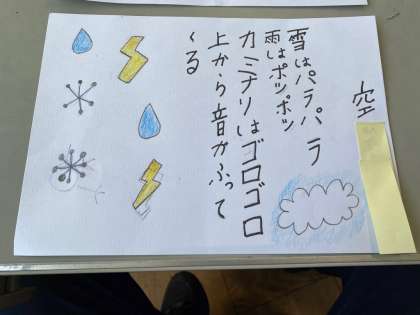 空
雪はパラパラ
雨はポツポツ
カミナリはゴロゴロ
上から音がふって
くる